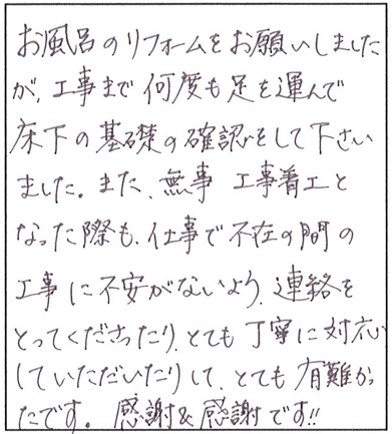 お風呂のリフォームをお願いしました
が、工事まで何度も足を運んで
床下の基礎の確認をして下さい
ました。また、無事 工事着工と
なった際も、仕事で不在の間の
工事に不安がないよう、連絡を
とってくださったり、とても丁寧に対応
していただいたりして、とても有難かっ
たです。感謝&感謝です!!